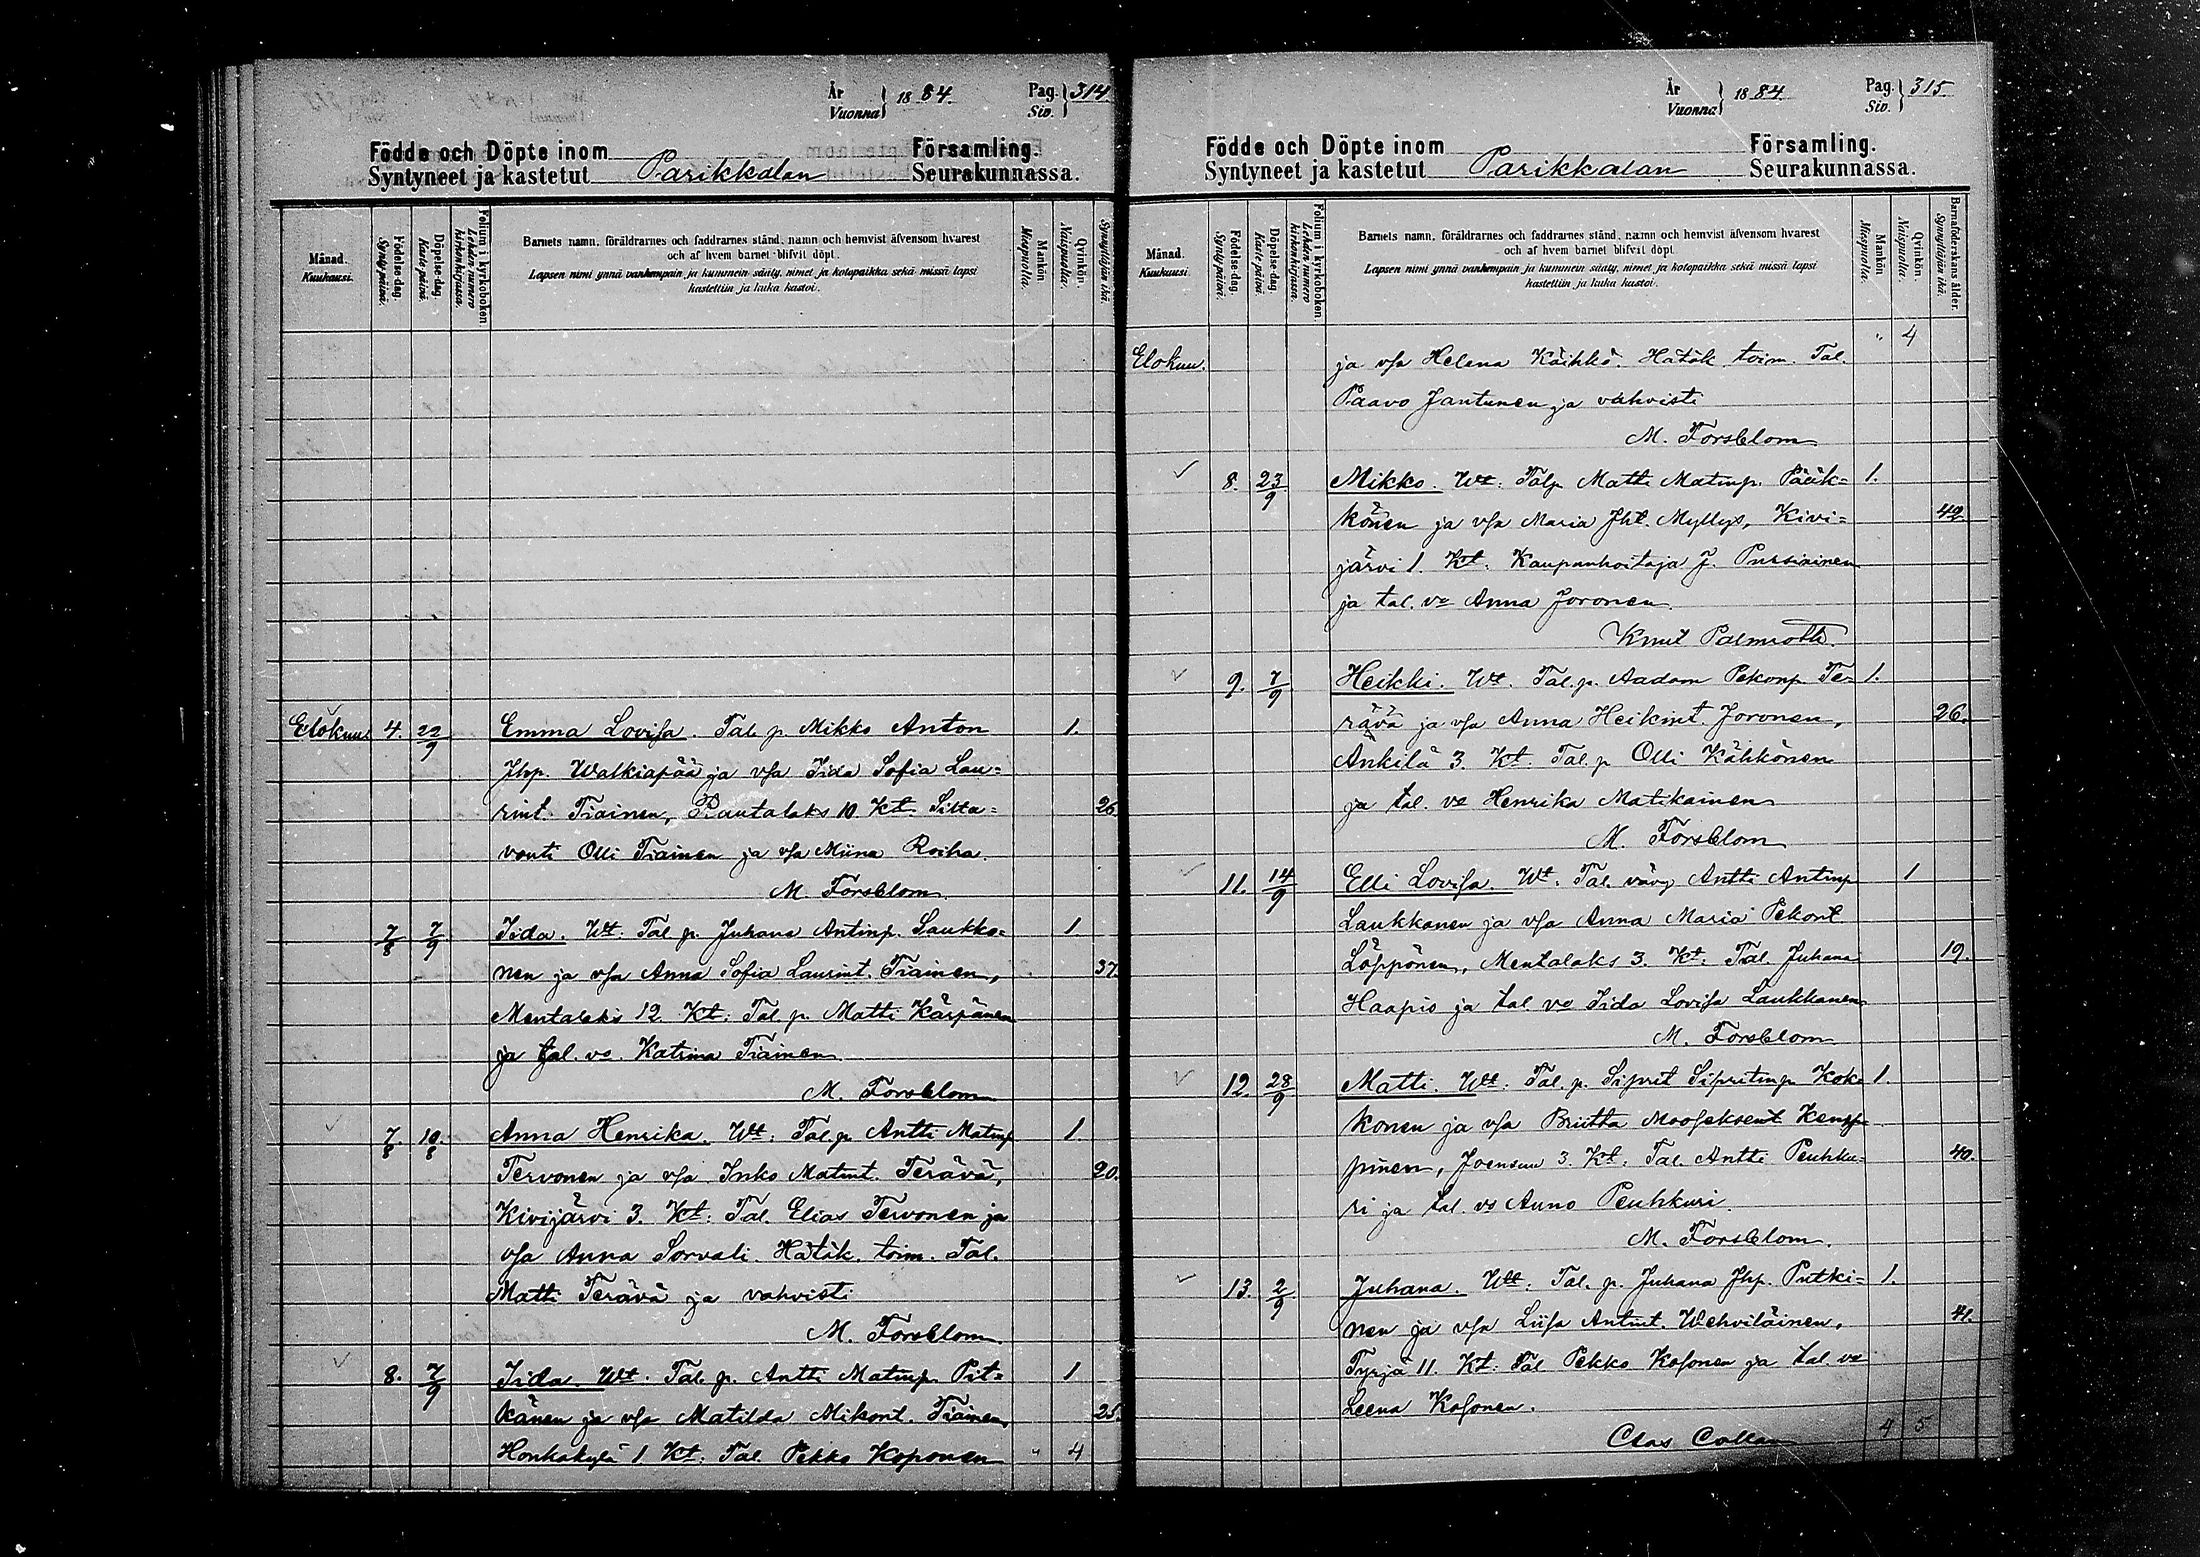 År
Vuonna } 1884.
Pag.
Siv. } 314
Födde och Döpte inom Församling.
Syntyneet ja kastetut Parikkalan Seurakunnassa.
Månad.
Kuukausi.
Födelse-dag.
Synty-päivä.
Döpelse-dag.
Kaste-päivä.
Folium i kyrkoboken
Lehden numero kirkonkirjassa.
Barnets namn, föräldrarnes och faddrarnes stånd, namn och hemvist äfvensom hvarest
och af hvem barnet blifvit döpt.
Lapsen nimi ynnä vanhempain ja kummein sääty, nimet ja kotopaikka sekä missä lapsi
kastettiin ja kuka kastoi.
Mankön
Miespuolta.
Qvinkön.
Naispuolta.
Synnyttäjän ikä.
Elokuu 4. 22/9 Emma Lovisa. Tal. p. Mikko Anton 1.
Jhp. Walkiapää ja vsa Iida Sofia Lau=
rint. Tiainen, Rautalaks 10. Kt. Silta= 26
vouti Olli Tiainen ja vsa Miina Roiha.
M. Forsblom
7/8 7/9 Iida. Wt: Tal p. Juhana Antinp. Saukko= 1
nen ja vsa Anna Sofia Laurint. Tiainen, 37
Mentalaks 12. Kt: Tal. p. Matti Kärpänen
ja tal. vo. Katrina Tiainen
M. Forsblom
7./8 10/8 Anna Henrika. Wt: Tal. p. Antti Matinp 1.
Tervonen ja vsa Inko Matint. Terävä, 20.
Kivijärvi 3. Kt: Tal. Elias Tervonen ja
vsa Anna Sorvali. Hätäk. toim. Tal.
Matti Terävä ja vahvisti
M. Forsblom
8. 7/9 Iida. Wt. Tal. p. Antti Matinp. Pit= 1
känen ja vsa Matilda Mikont. Tiainen, 25
Honkakylä 1 Kt: Tal. Pekko Koponen " 4
År
Vuonna } 1884.
Pag.
Siv. } 315.
Födde och Döpte inom Församling.
Syntyneet ja kastetut Parikkalan Seurakunnassa.
Månad.
Kuukausi.
Födelse-dag.
Synty-päivä.
Döpelse-dag.
Kaste-päivä.
Folium i kyrkoboken
Lehden numero kirkonkirjassa.
Barnets namn, föräldrarnes och faddrarnes stånd, namn och hemvist äfvensom hvarest
och af hvem barnet blifvit döpt.
Lapsen nimi ynnä vanhempain ja kummein sääty, nimet ja kotopaikka sekä missä lapsi
kastettiin ja kuka kastoi.
Mankön
Miespuolta.
Qvinkön.
Naispuolta.
Barnaföderskans ålder.
Synnyttäjän ikä.
Elokuu. ja vsa Helena Käihkö. Hätäk toim. Tal. " 4
Paavo Jantunen ja vahvisti
M. Forsblom
8. 23/9 Mikko. Wt: Talp Matti Matinp. Pääk= 1.
könen ja vsa Maria Jht. Myllys, Kivi= 42
järvi 1. Kt: Kaupanhoitaja J. Pursiainen
ja tal. vo Anna Joronen.
Knut Palmroth.
9. 7/9 Heikki. Wt. Tal. p. Aadam Pekonp Te= 1.
rävä ja vsa Anna Heikint. Joronen, 26.
Ankilä 3. Kt. Tal. p Olli Kähkönen
ja tal. vo Henrika Matikainen
M. Forsblom
11. 14/9 Elli Lovisa. Wt: Tal. vävy Antti Antinp 1
Laukkanen ja vsa Anna Maria Pekont
Löppönen, Mentalaks 3. Kt: Tal. Juhana 19.
Haapio ja tal. vo Iida Lovisa Laukkanen
M. Forsblom
12. 28/9 Matti. Wt: Tal. p. Siprit Sipritinp Kok= 1.
konen ja vsa Briitta Mooseksent Kemp=
pinen, Joensuu 3. Kt: Tal. Antti Peuhku= 40.
ri ja tal. vo Anno Peuhkuri.
M. Forsblom.
13. 2/9 Juhana. Wt: Tal. p. Juhana Jhp. Putki= 1.
nen ja vsa Liisa Antint. Wehviläinen, 41.
Tyrjä 11. Kt: Tal Pekko Kosonen ja tal. vo
Leena Kosonen.
Clas Collan 4 5